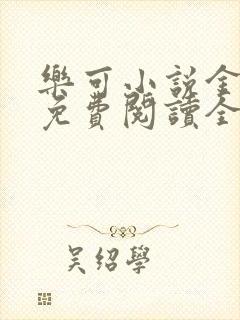 樂可小説全
免費閱讀全
吴绍學